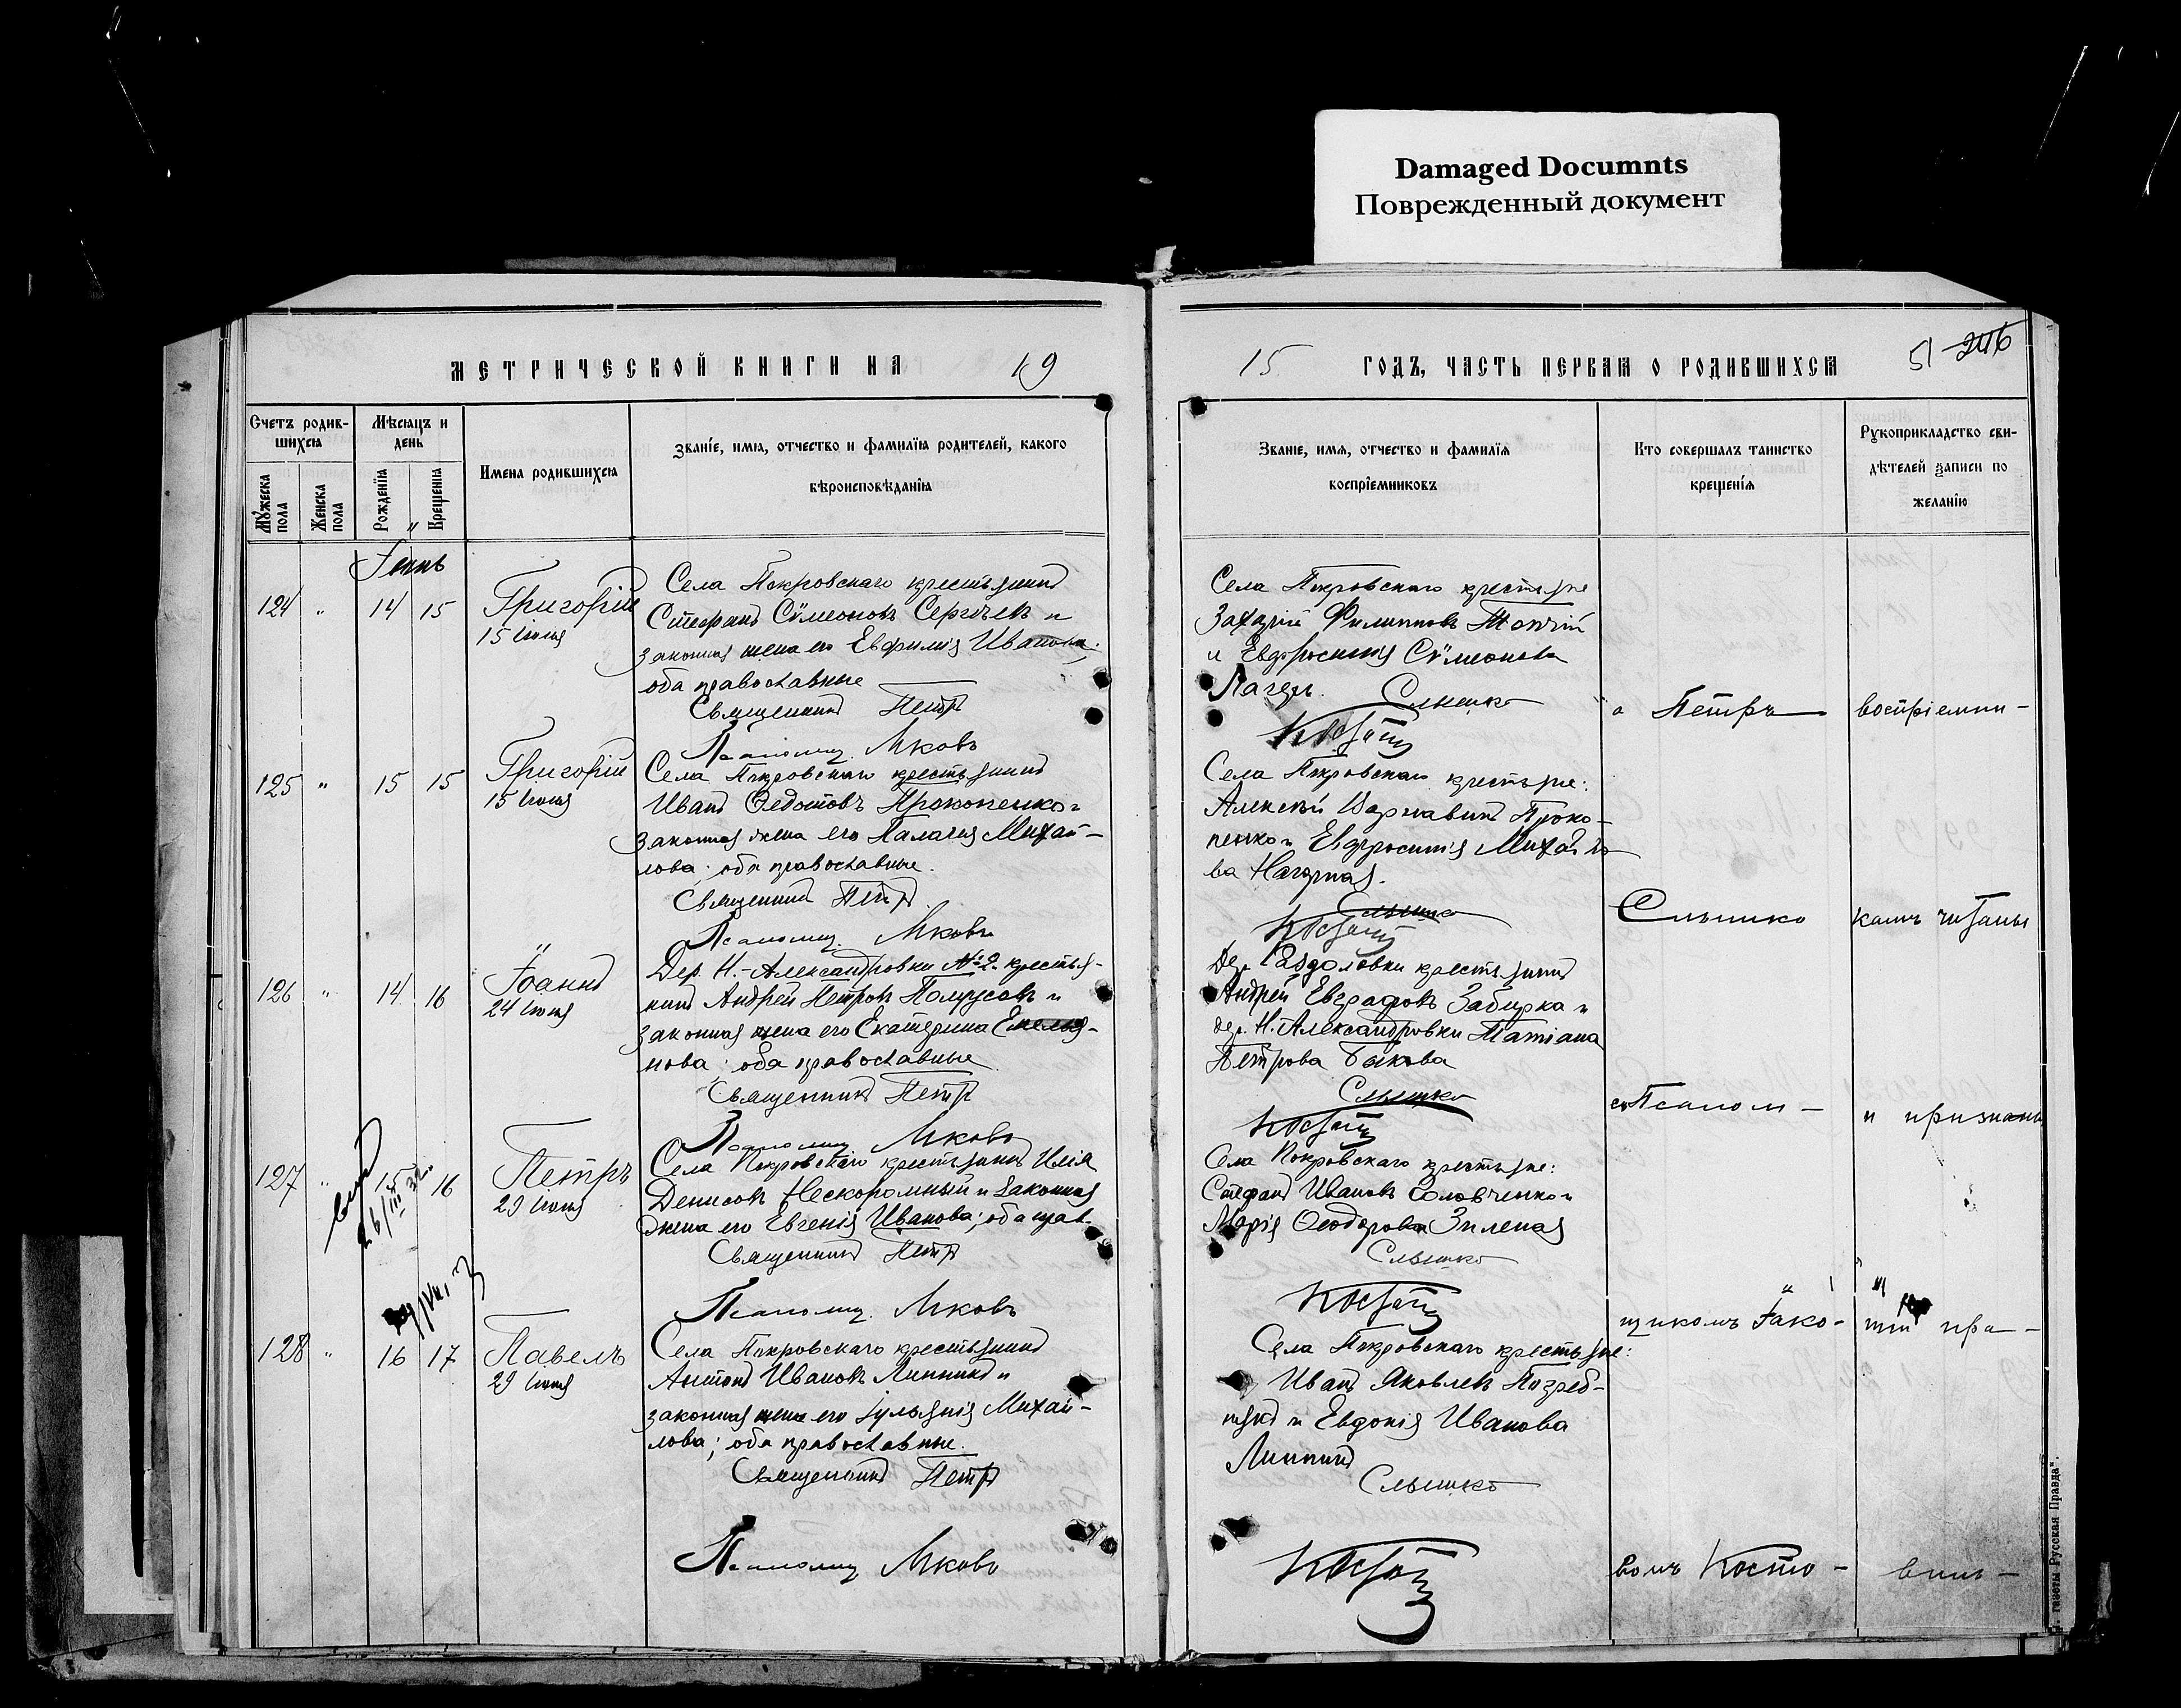 Damaged Documnts
Поврежденный документ
МЕТРИЧЕСКОЙ КНИГИ НА 19
15 ГОДЪ, ЧАСТЬ ПЕРВАЯ О РОДИВШИХСЯ
51 246
Счетъ родив-
шихся
Мужеска пола
Женска пола
Мѣсяцъ и
день
Рожденія
Крещенія
Имена родившихся
Званіе, имя, отчество и фамилія родителей, какого
вѣроисповѣданія
Званіе, имя, отчество и фамилія
воспріемниковъ
Кто совершалъ таинство
крещенія
Рукоприкладство сви-
дѣтелей записи по
желанію
124 " 14 15
Григорій
15 Іюня
Села Покровскаго крестьянинъ
Стефанъ Сѵмеоновъ Сергѣевъ и
законная жена его Евфимія Иванова;
оба православные
Священникъ Петръ
Псаломщ. Іяковъ
Села Покровскаго крестьяне
Захарій Филипповъ
и Евфросинія Сѵмеонова
Слышко
Петръ
воспріемни-
125 " 15 15
Григорій
15 Іюня
Села Покровскаго крестьянинъ
Иванъ Федотовъ Прокопенко и
законная жена его Палагія Михай-
лова; оба православные.
Священникъ Петръ
Псаломщ. Іяковъ
Села Покровскаго крестьяне:
Алексѣй Варнавинъ Проко-
пенко и Евфросинія Михайло
ва Нагорная.
Слышко
Слышко
камъ читаны
126 " 14 16
Іоаннъ
24 Іюня
Дер. Н.-Александровки № 2 крестья-
нинъ Андрей Петровъ и
законная жена его Екатерина Емелья-
нова; оба православные
Священникъ Петръ
Псаломщ. Іяковъ
Дер. Раздоловки крестьянинъ
Андрей Евграфовъ Забирка и
дер. Н. Александровки Татіана
Петрова Быкова
Слышко
съ Псалом-
и признаны
127 " 15 16
26/III 32
Петръ
29 Іюня
Села Покровскаго крестьянинъ Илія
Денисовъ Нескоромный и законная
жена его Евгенія Иванова; оба прав.
Священникъ Петръ
Псаломщ. Іяковъ
Села Покровскаго крестьяне:
Стефанъ Ивановъ Соловченко и
Марія Ѳеодорова Зиленая
Слышко
щикомъ Іако-
ими пра-
128 " 16 17
Павелъ
29 Іюня
Села Покровскаго крестьянинъ
Антонъ Ивановъ Линникъ и
законная жена его Іуліанія Михай-
лова; оба православные.
Священникъ Петръ
Псаломщ. Іяковъ
Села Покровскаго крестьяне:
Иванъ Яковлевъ Погреб-
някъ и Евдокія Иванова
Линникъ
Слышко
вомъ Косто-
виль-
газеты „Русская Правда“.